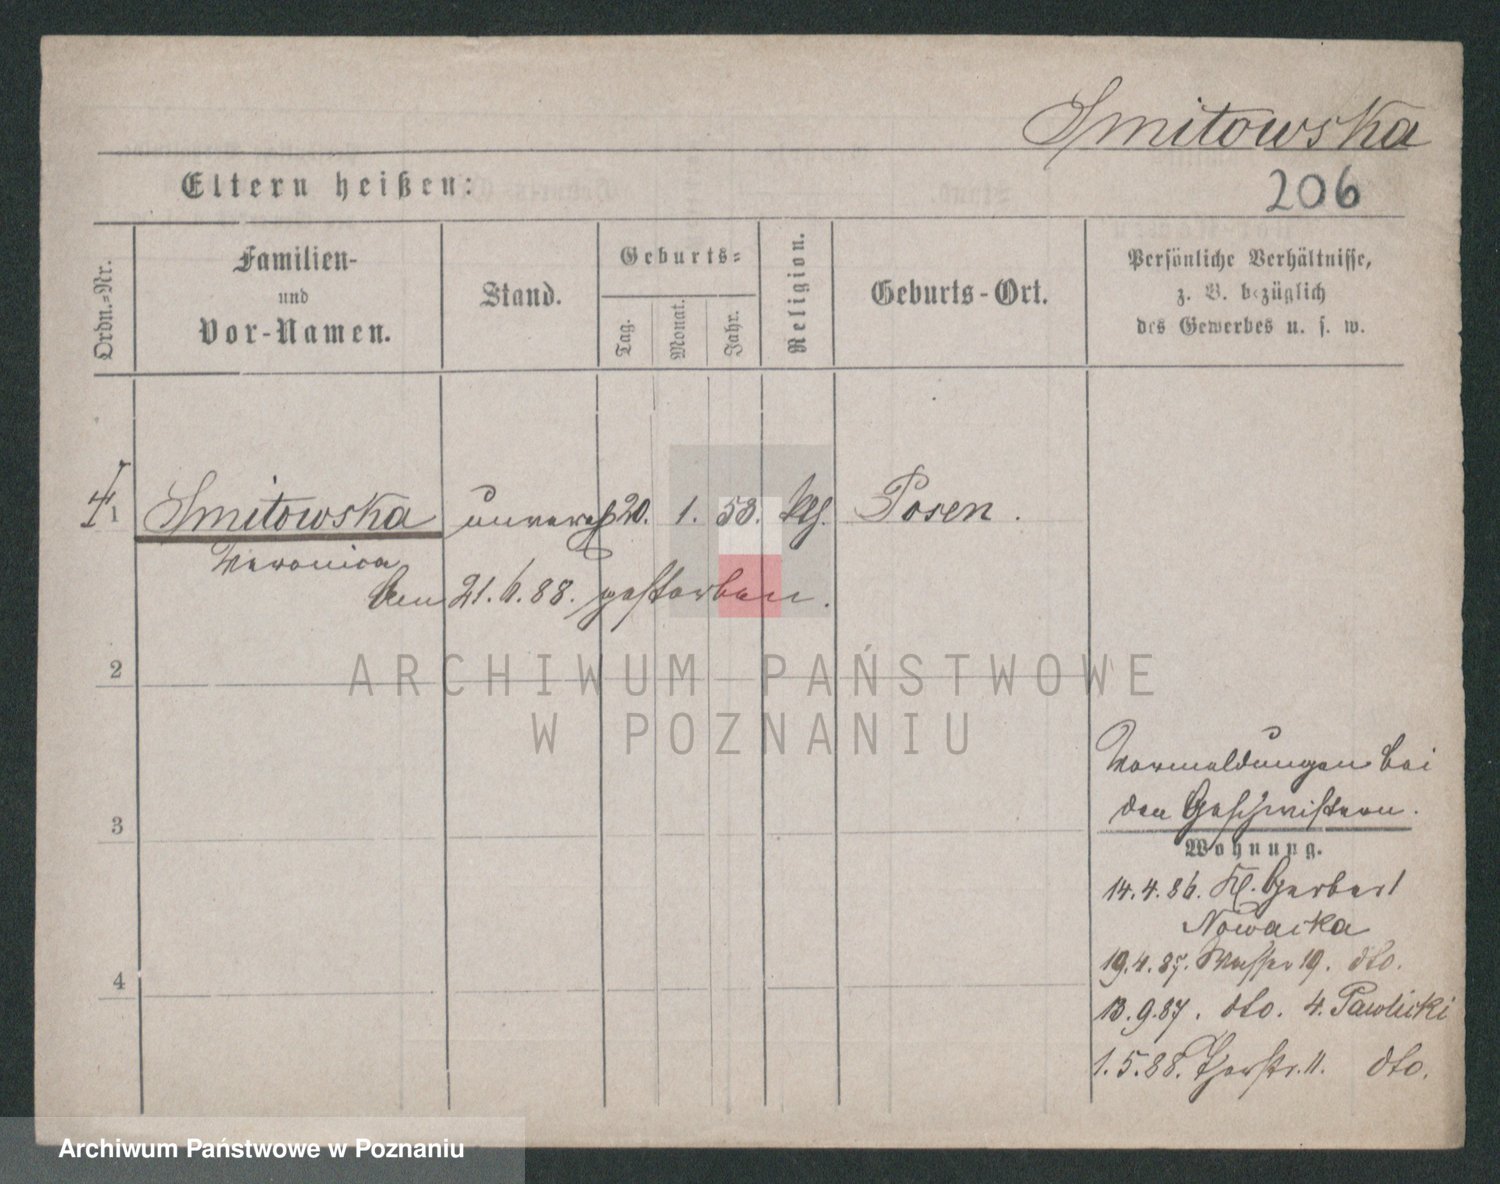 Smitowska
206
Eltern heißen:
Ordn.-Nr.
Familien-
und
Vor-Namen.
Stand.
Geburts-
Tag.
Monat.
Jahr.
Religion.
Geburts-Ort.
Persönliche Verhältnisse,
z. B. bezüglich
des Gewerbes u. s. w.
1 Smitowska unvereh 20. 1. 53. kth. Posen.
Veronica
den 21. 6. 88. gestorben.
2
ARCHIWUM PAŃSTWOWE
W POZNANIU
Vormeldungen bei
den Geschwistern.
3
Wohnung.
14. 4. 86. Kl. Gerber 1
Nowacka
19. 4. 87. Wasser 19. dto.
4
13. 9. 87. dto. 4. Pawlicki
1. 5. 88. 11. dto.
Archiwum Państwowe w Poznaniu